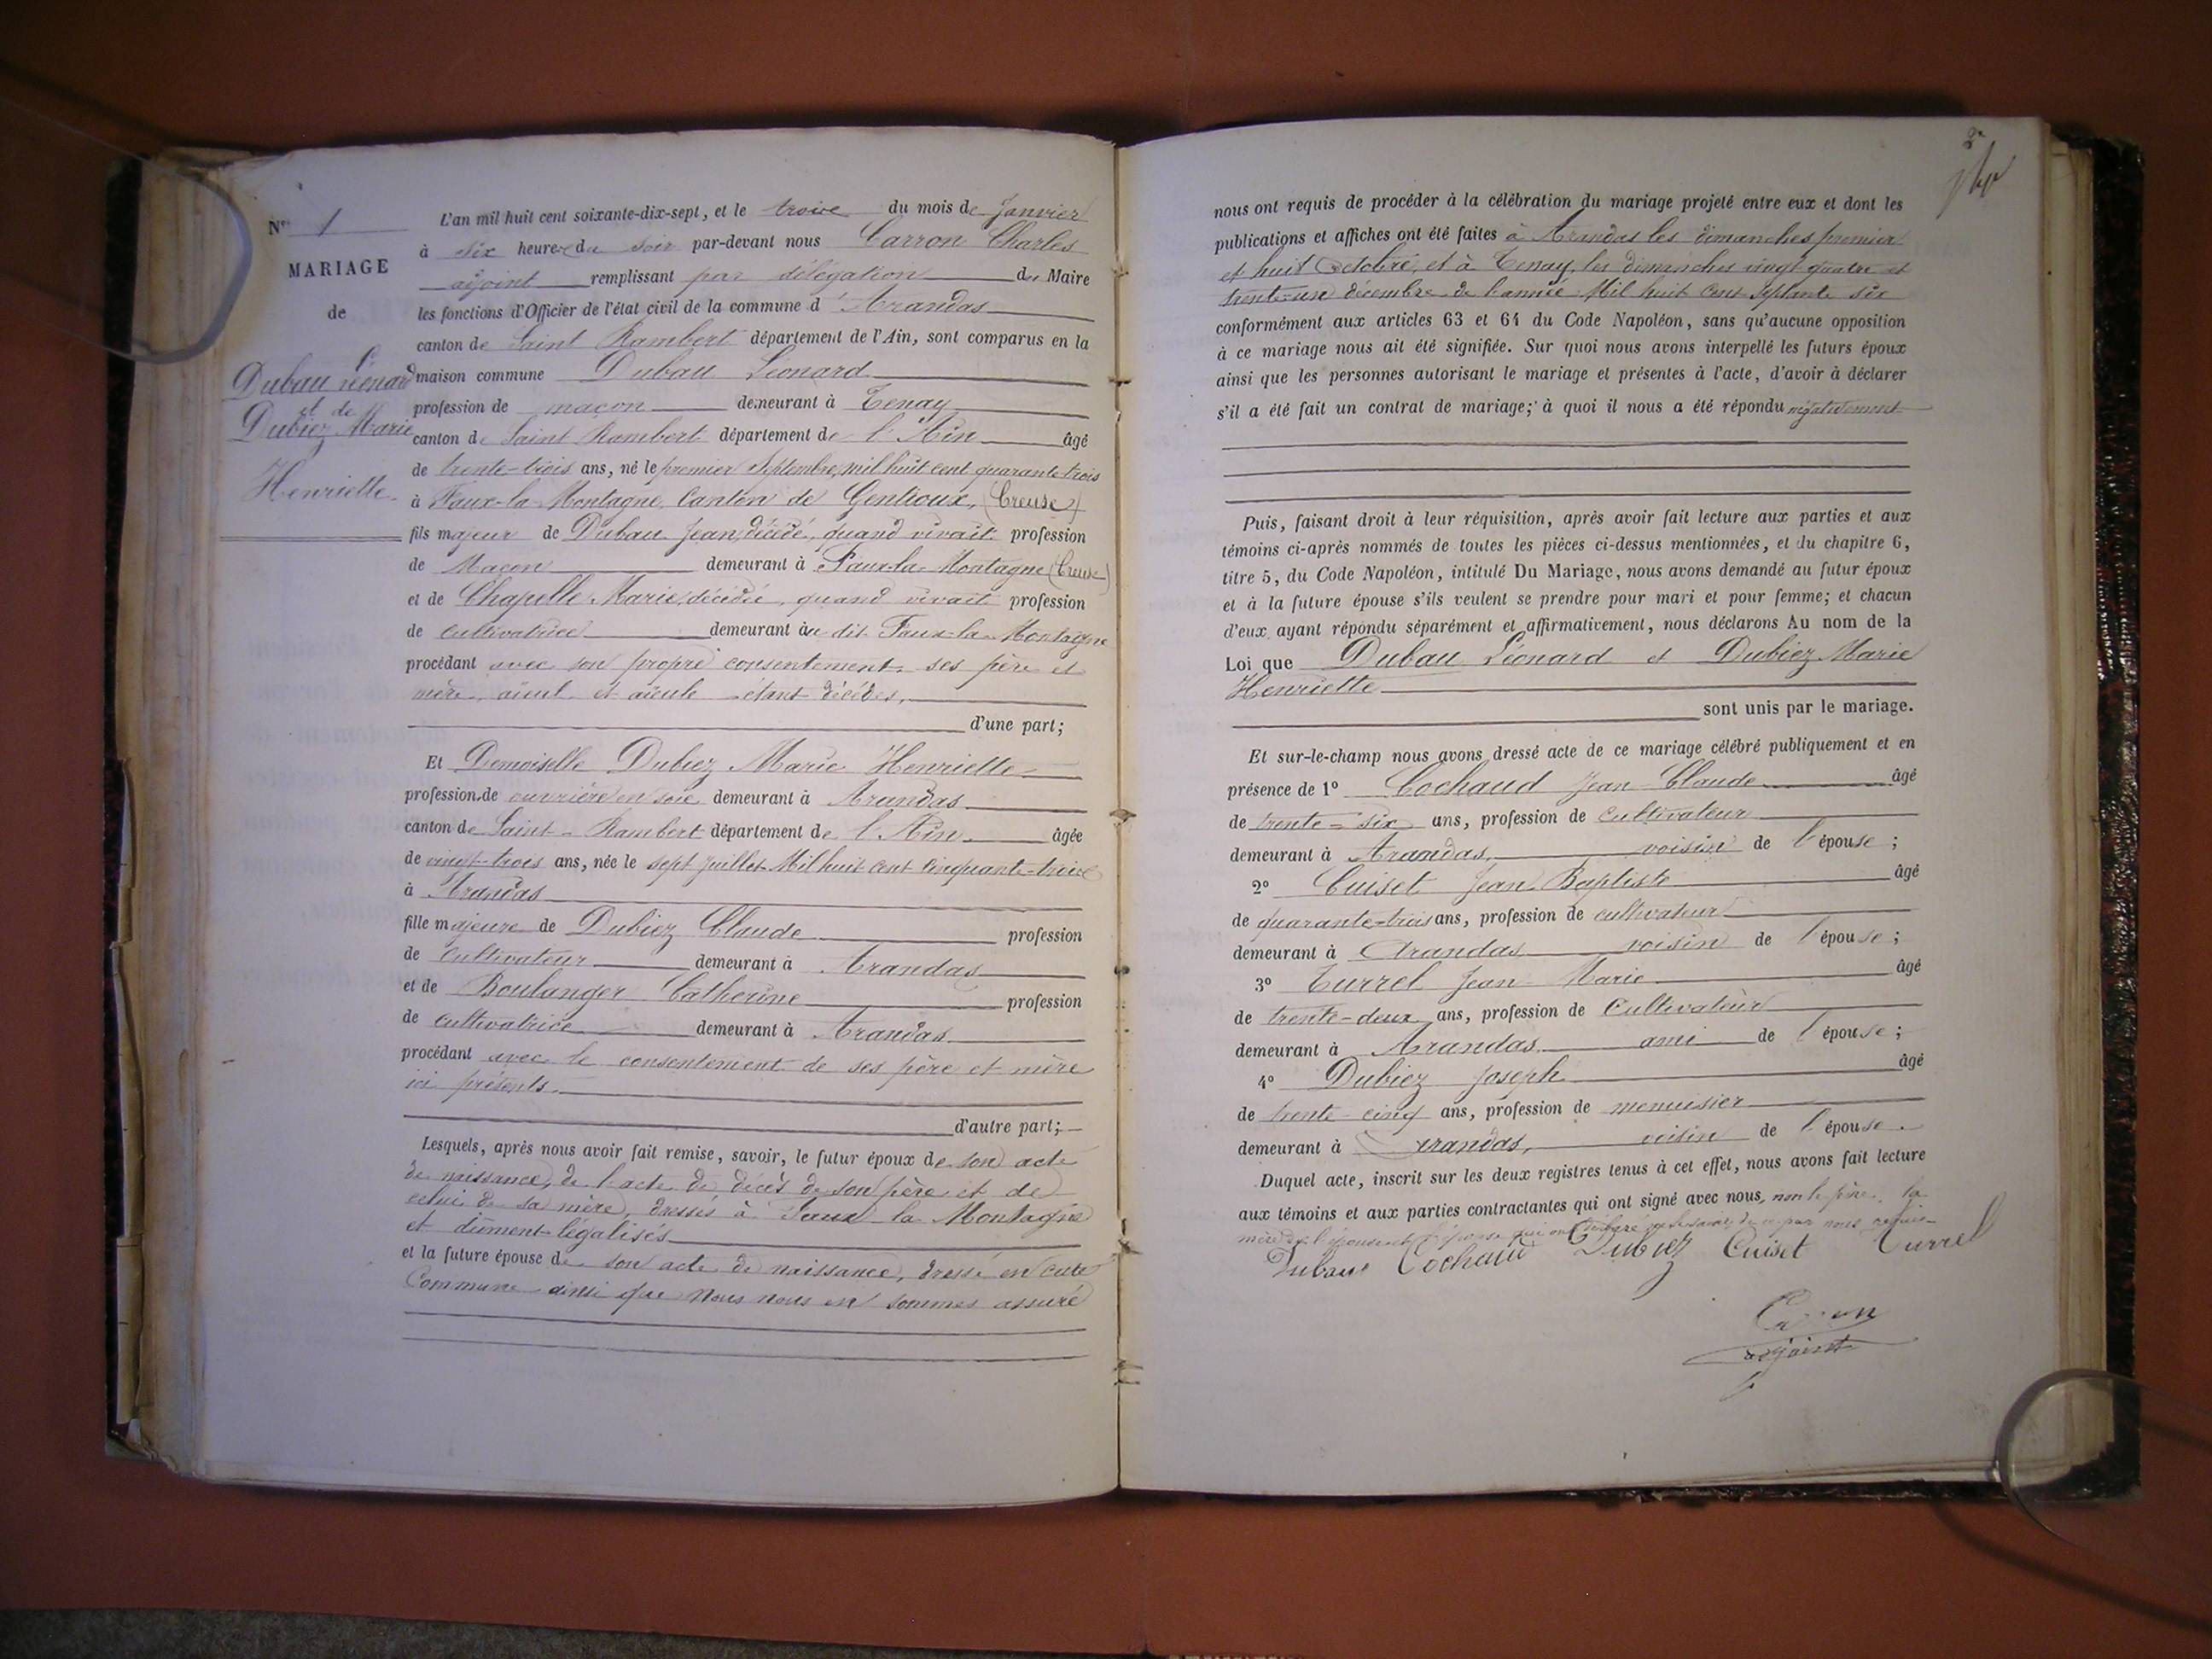 N° 1
MARIAGE
de
Dubau Léonard
et de
Dubiez Marie
Henriette
L'an mil huit cent soixante-dix-sept, et le trois du mois de Janvier
à six heures du soir par-devant nous Carron Charles
adjoint remplissant par délégation du Maire
les fonctions d'Officier de l'état civil de la commune d'Arandas
canton de Saint Rambert département de l'Ain, sont comparus en la
maison commune Dubau Léonard
profession de maçon demeurant à Tenay
canton de Saint Rambert département de l'Ain âgé
de trente-trois ans, né le premier Septembre mil huit cent quarante trois
à Faux-la-Montagne, Canton de Gentioux, (Creuse)
fils majeur de Dubau Jean, décédé, quand vivait profession
de Maçon demeurant à Faux-la-Montagne (Creuse)
et de Chapelle Marie, décédée, quand vivait profession
de cultivatrice demeurant au dit Faux-la-Montagne
procédant avec son propre consentement, ses père et
mère, aïeul et aïeule étant décédés,
d'une part;
Et Demoiselle Dubiez Marie Henriette
profession de ouvrière en soie demeurant à Arandas
canton de Saint-Rambert département de l'Ain âgée
de vingt-trois ans, née le sept juillet Mil huit cent cinquante-trois
à Arandas
fille majeure de Dubiez Claude profession
de cultivateur demeurant à Arandas
et de Boulanger Catherine profession
de cultivatrice demeurant à Arandas
procédant avec le consentement de ses père et mère
ici présents
d'autre part;
Lesquels, après nous avoir fait remise, savoir, le futur époux de son acte
de naissance, de l'acte de décès de son père et de
celui de sa mère, dressés à Faux-la-Montagne
et dûment légalisés
et la future épouse de son acte de naissance, dressé en cette
Commune ainsi que nous nous en sommes assuré
2
nous ont requis de procéder à la célébration du mariage projeté entre eux et dont les
publications et affiches ont été faites à Arandas les dimanches premier
et huit Octobre, et à Tenay, les dimanches vingt quatre et
trente-un décembre de l'année Mil huit cent septante six
conformément aux articles 63 et 64 du Code Napoléon, sans qu'aucune opposition
à ce mariage nous ait été signifiée. Sur quoi nous avons interpellé les futurs époux
ainsi que les personnes autorisant le mariage et présentes à l'acte, d'avoir à déclarer
s'il a été fait un contrat de mariage; à quoi il nous a été répondu négativement
Puis, faisant droit à leur réquisition, après avoir fait lecture aux parties et aux
témoins ci-après nommés de toutes les pièces ci-dessus mentionnées, et du chapitre 6,
titre 5, du Code Napoléon, intitulé Du Mariage, nous avons demandé au futur époux
et à la future épouse s'ils veulent se prendre pour mari et pour femme; et chacun
d'eux ayant répondu séparément et affirmativement, nous déclarons Au nom de la
Loi que Dubau Léonard et Dubiez Marie
Henriette
sont unis par le mariage.
Et sur-le-champ nous avons dressé acte de ce mariage célébré publiquement et en
présence de 1° Cochaud Jean Claude âgé
de trente-six ans, profession de cultivateur
demeurant à Arandas, voisin de l'épouse;
2° Cuiset Jean Baptiste âgé
de quarante-trois ans, profession de cultivateur
demeurant à Arandas voisin de l'épouse;
3° Turrel Jean-Marie âgé
de trente-deux ans, profession de Cultivateur
demeurant à Arandas ami de l'épouse;
4° Dubiez Joseph âgé
de trente-cinq ans, profession de menuisier
demeurant à Arandas, voisin de l'épouse.
Duquel acte, inscrit sur les deux registres tenus à cet effet, nous avons fait lecture
aux témoins et aux parties contractantes qui ont signé avec nous, non le père, la
mère de l'épouse et l'épouse qui ont déclaré ne le savoir de ce par nous requis
Dubau Cochaud Dubiez Cuiset Turrel
Carron
adjoint